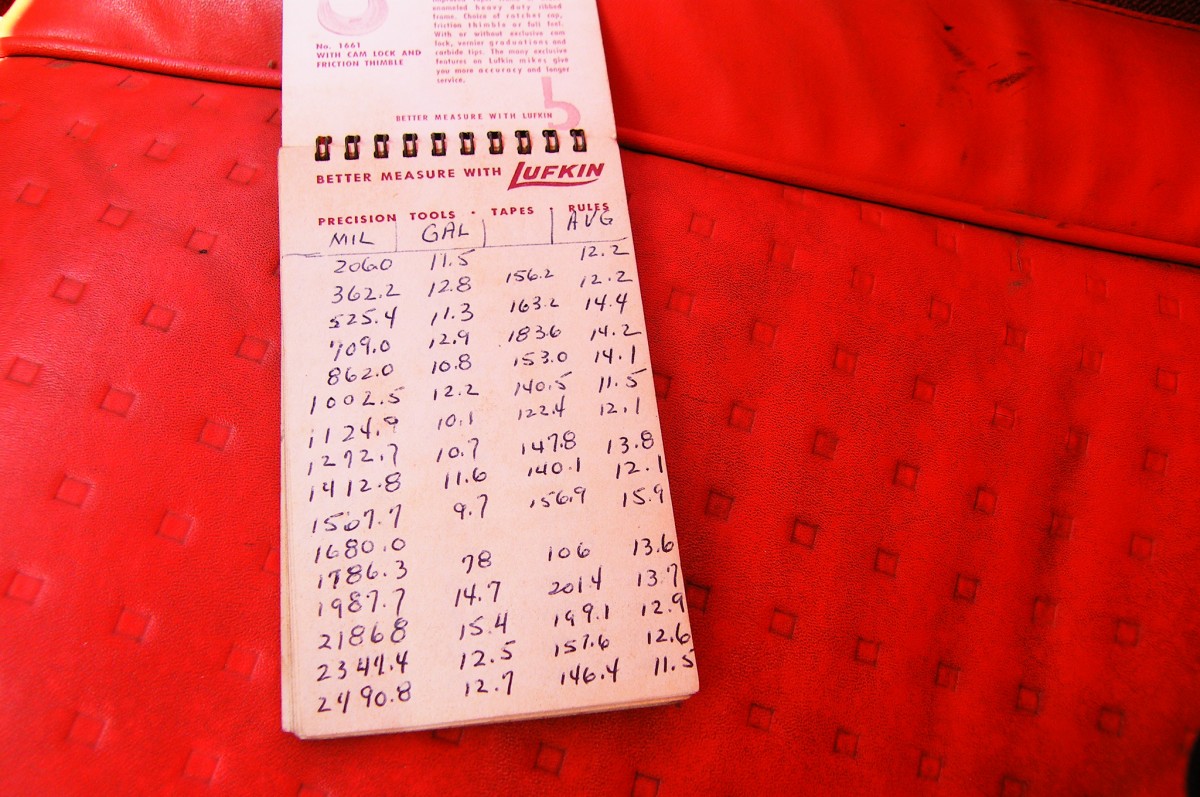 No. 1661
WITH CAM LOCK AND
FRICTION THIMBLE
enameled heavy duty ribbed
frame. Choice of ratchet cap,
friction thimble or full feel.
With or without exclusive cam
lock, vernier graduations and
carbide tips. The many exclusive
features on Lufkin mikes give
you more accuracy and longer
service.
BETTER MEASURE WITH LUFKIN
BETTER MEASURE WITH LUFKIN
PRECISION TOOLS · TAPES · RULES
MIL GAL AVG
206.0 11.5 12.2
362.2 12.8 156.2 12.2
525.4 11.3 163.2 14.4
709.0 12.9 183.6 14.2
862.0 10.8 153.0 14.1
1002.5 12.2 140.5 11.5
1124.9 10.1 122.4 12.1
1272.7 10.7 147.8 13.8
1412.8 11.6 140.1 12.1
1567.7 9.7 156.9 15.9
1680.0
1786.3 78 106 13.6
1987.7 14.7 201.4 13.7
21868 15.4 199.1 12.9
2344.4 12.5 157.6 12.6
2490.8 12.7 146.4 11.5